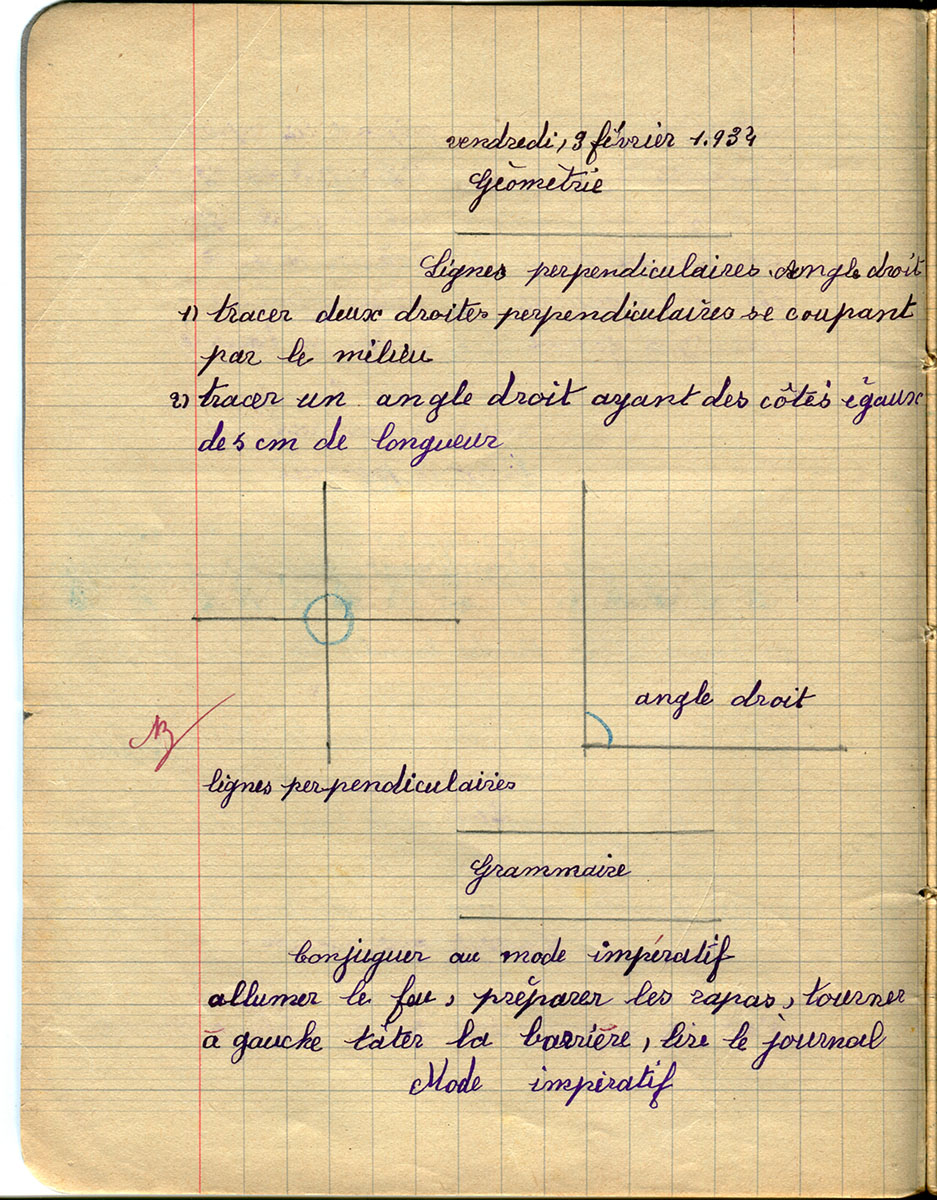 vendredi, 9 février 1.934
Géométrie
Lignes perpendiculaires. Angle droit
1) tracer deux droites perpendiculaires se coupant
par le milieu
2) tracer un angle droit ayant des côtés égaux
de 5 cm de longueur
angle droit
lignes perpendiculaires
Grammaire
Conjuguer au mode impératif
allumer le feu, préparer les rapas, tourner
à gauche tâter la barrière, lire le journal
Mode impératif